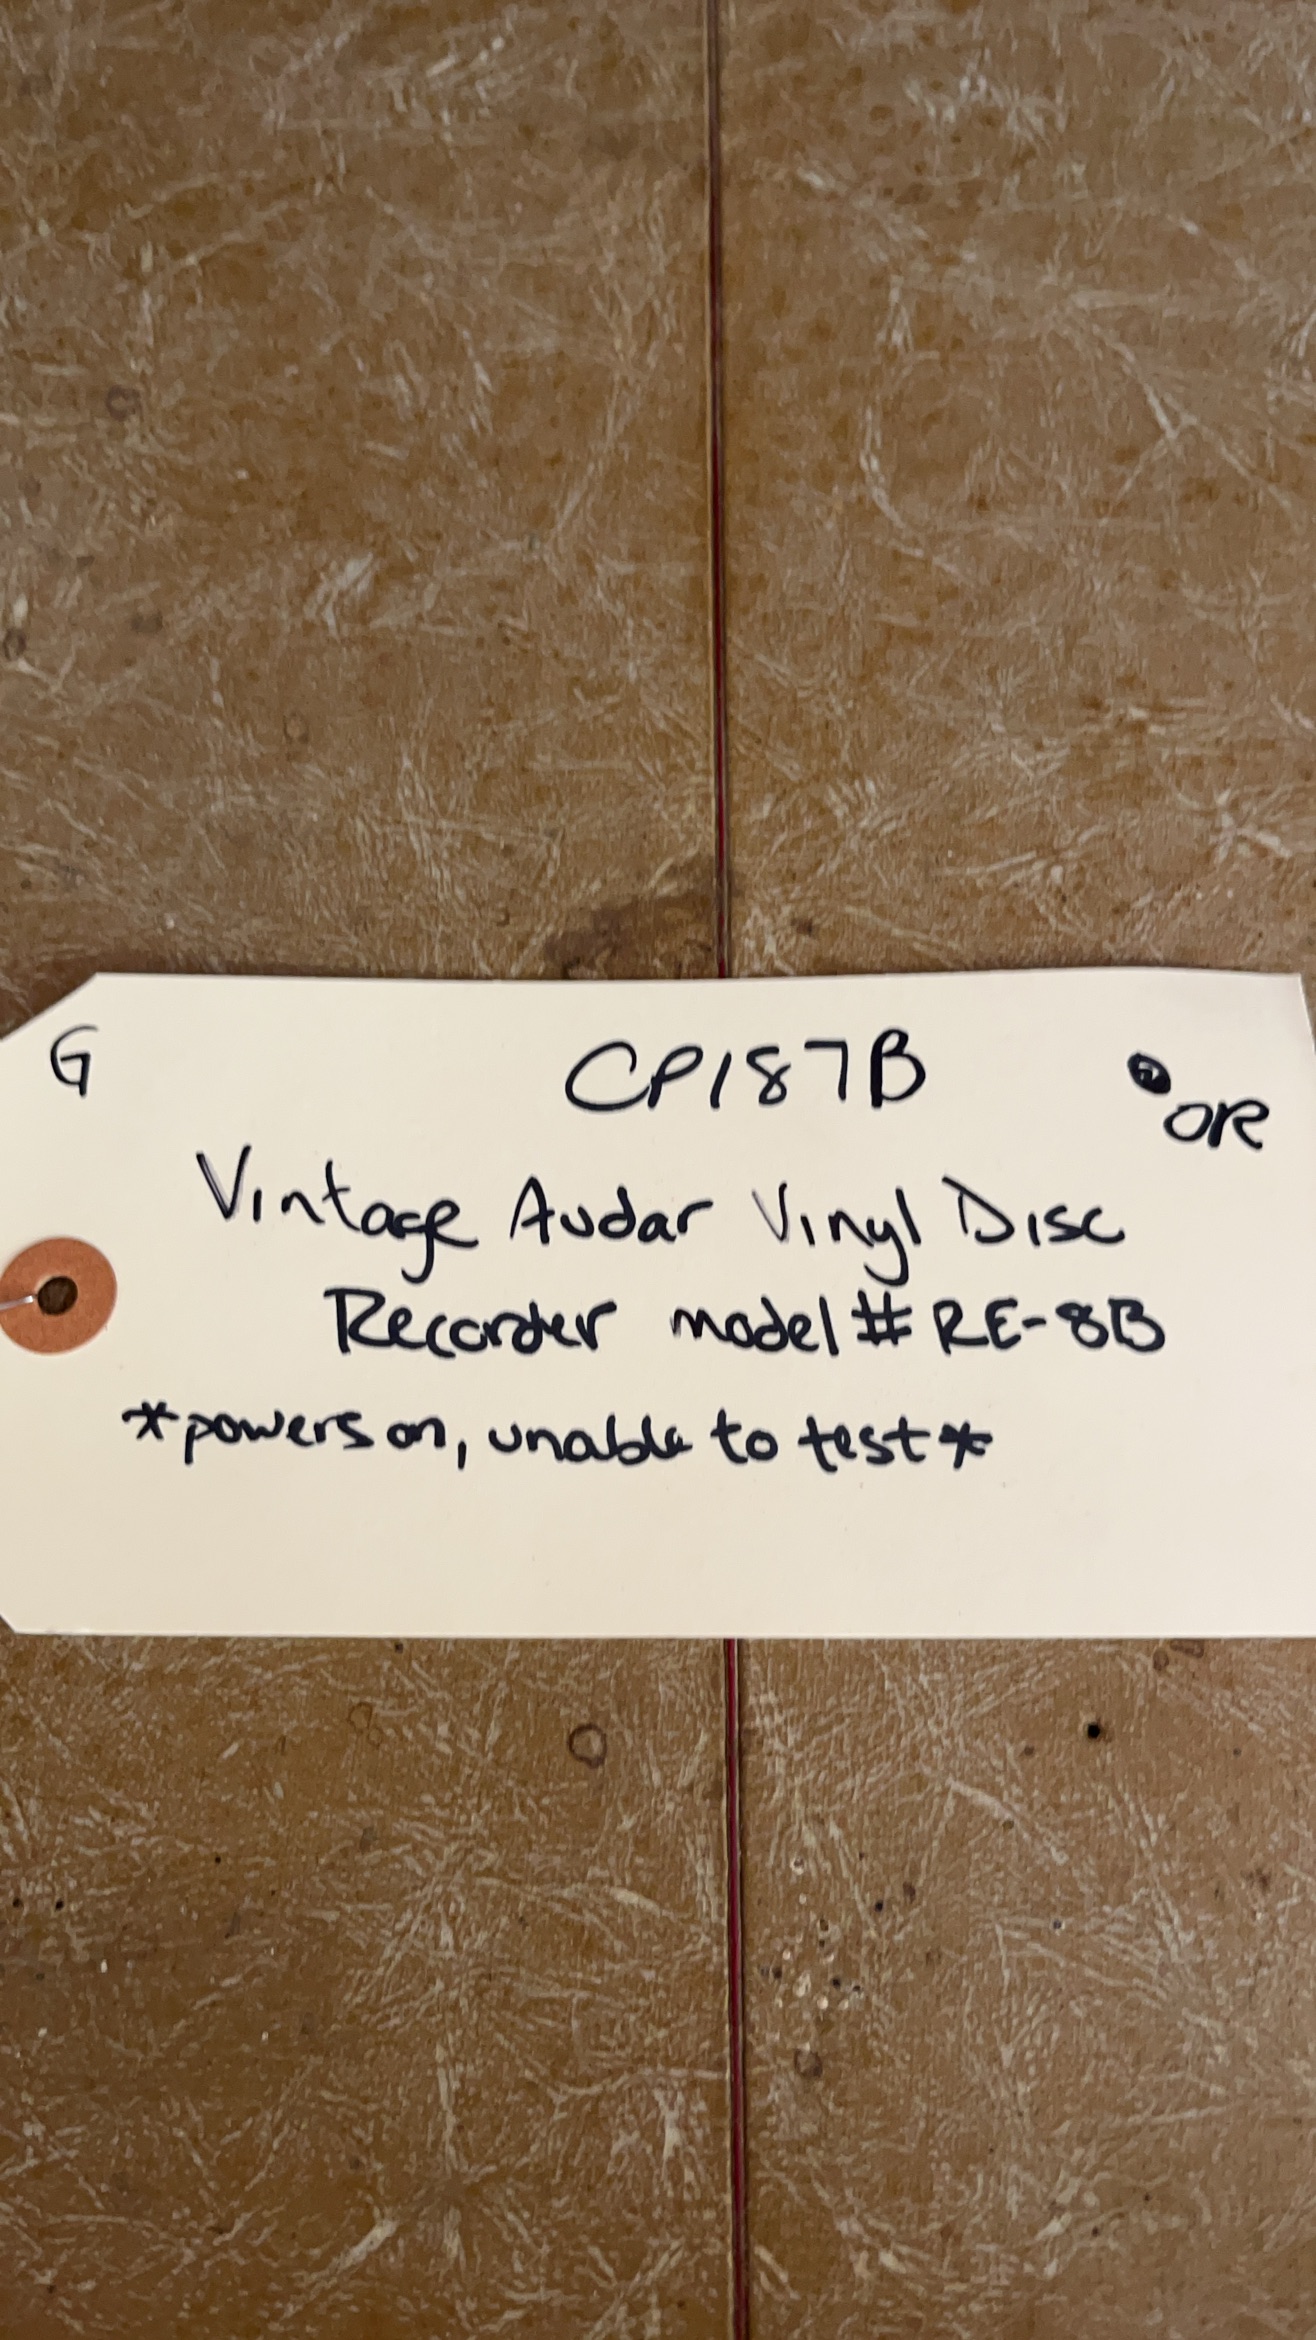 G CP187B
OR
Vintage Audar Vinyl Disc
Recorder model # RE-8B
*powers on, unable to test*